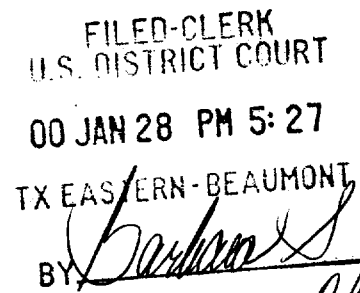 FILED-CLERK
U.S. DISTRICT COURT
00 JAN 28 PM 5:27
TX EASTERN-BEAUMONT
BY